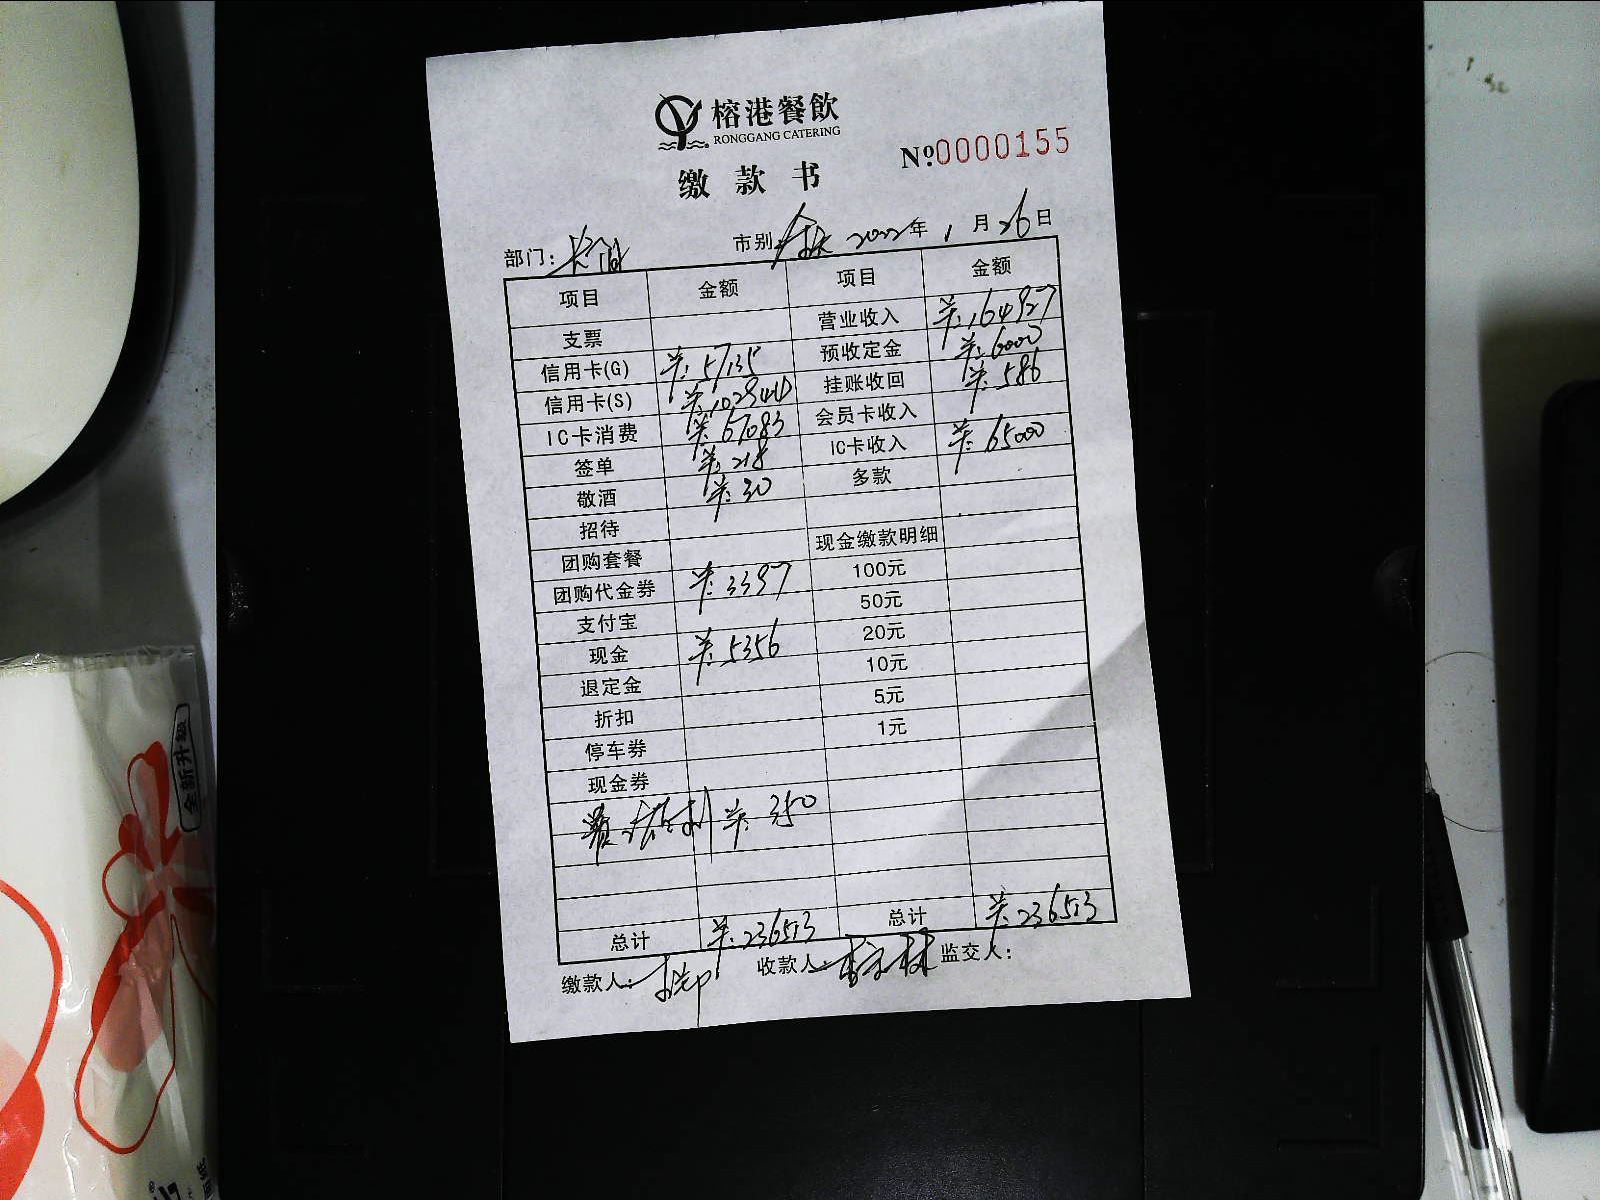 榕港餐飲
RONGGANG CATERING
缴款书
№0000155
部门： 市别 2022年1月26日
项目 金额 项目 金额
支票 营业收入 ¥:164927
信用卡(G) ¥:57135 预收定金 ¥:6000
信用卡(S) ¥:102944 挂账收回 ¥:586
IC卡消费 ¥:67083 会员卡收入
签单 ¥:218 IC卡收入 ¥:65000
敬酒 ¥:30 多款
招待
团购套餐 现金缴款明细
团购代金券 ¥:3397 100元
支付宝 50元
现金 ¥:5356 20元
退定金 10元
折扣 5元
停车券 1元
现金券
¥:350
总计 ¥:236513 总计 ¥:236513
缴款人： 收款人： 监交人：
全新升级